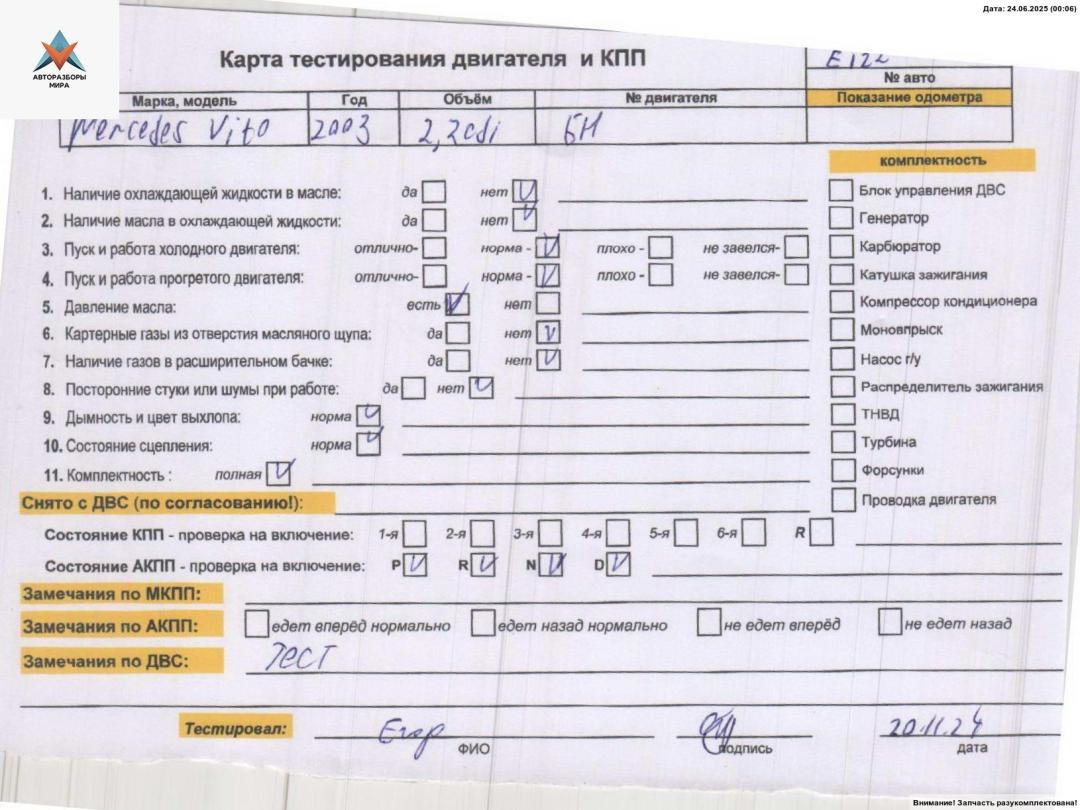 Дата: 24.06.2025 (00:06)
АВТОРАЗБОРЫ
МИРА
Карта тестирования двигателя и КПП
E122
№ авто
Марка, модель Год Объём № двигателя Показание одометра
Mercedes Vito 2003 2,2cdi БН
комплектность
1. Наличие охлаждающей жидкости в масле: да нет
Блок управления ДВС
2. Наличие масла в охлаждающей жидкости: да нет
Генератор
3. Пуск и работа холодного двигателя: отлично- норма - плохо - не завелся-
Карбюратор
4. Пуск и работа прогретого двигателя: отлично- норма - плохо - не завелся-
Катушка зажигания
5. Давление масла: есть нет
Компрессор кондиционера
6. Картерные газы из отверстия масляного щупа: да нет
Моновпрыск
7. Наличие газов в расширительном бачке: да нет
Насос г/у
8. Посторонние стуки или шумы при работе: да нет
Распределитель зажигания
9. Дымность и цвет выхлопа: норма
ТНВД
10. Состояние сцепления: норма
Турбина
11. Комплектность : полная
Форсунки
Снято с ДВС (по согласованию!):
Проводка двигателя
Состояние КПП - проверка на включение: 1-я 2-я 3-я 4-я 5-я 6-я R
Состояние АКПП - проверка на включение: P R N D
Замечания по МКПП:
Замечания по АКПП: едет вперёд нормально едет назад нормально не едет вперёд не едет назад
Замечания по ДВС: Тест
Тестировал: Егор 20.11.24
ФИО подпись дата
Внимание! Запчасть разукомплектована!